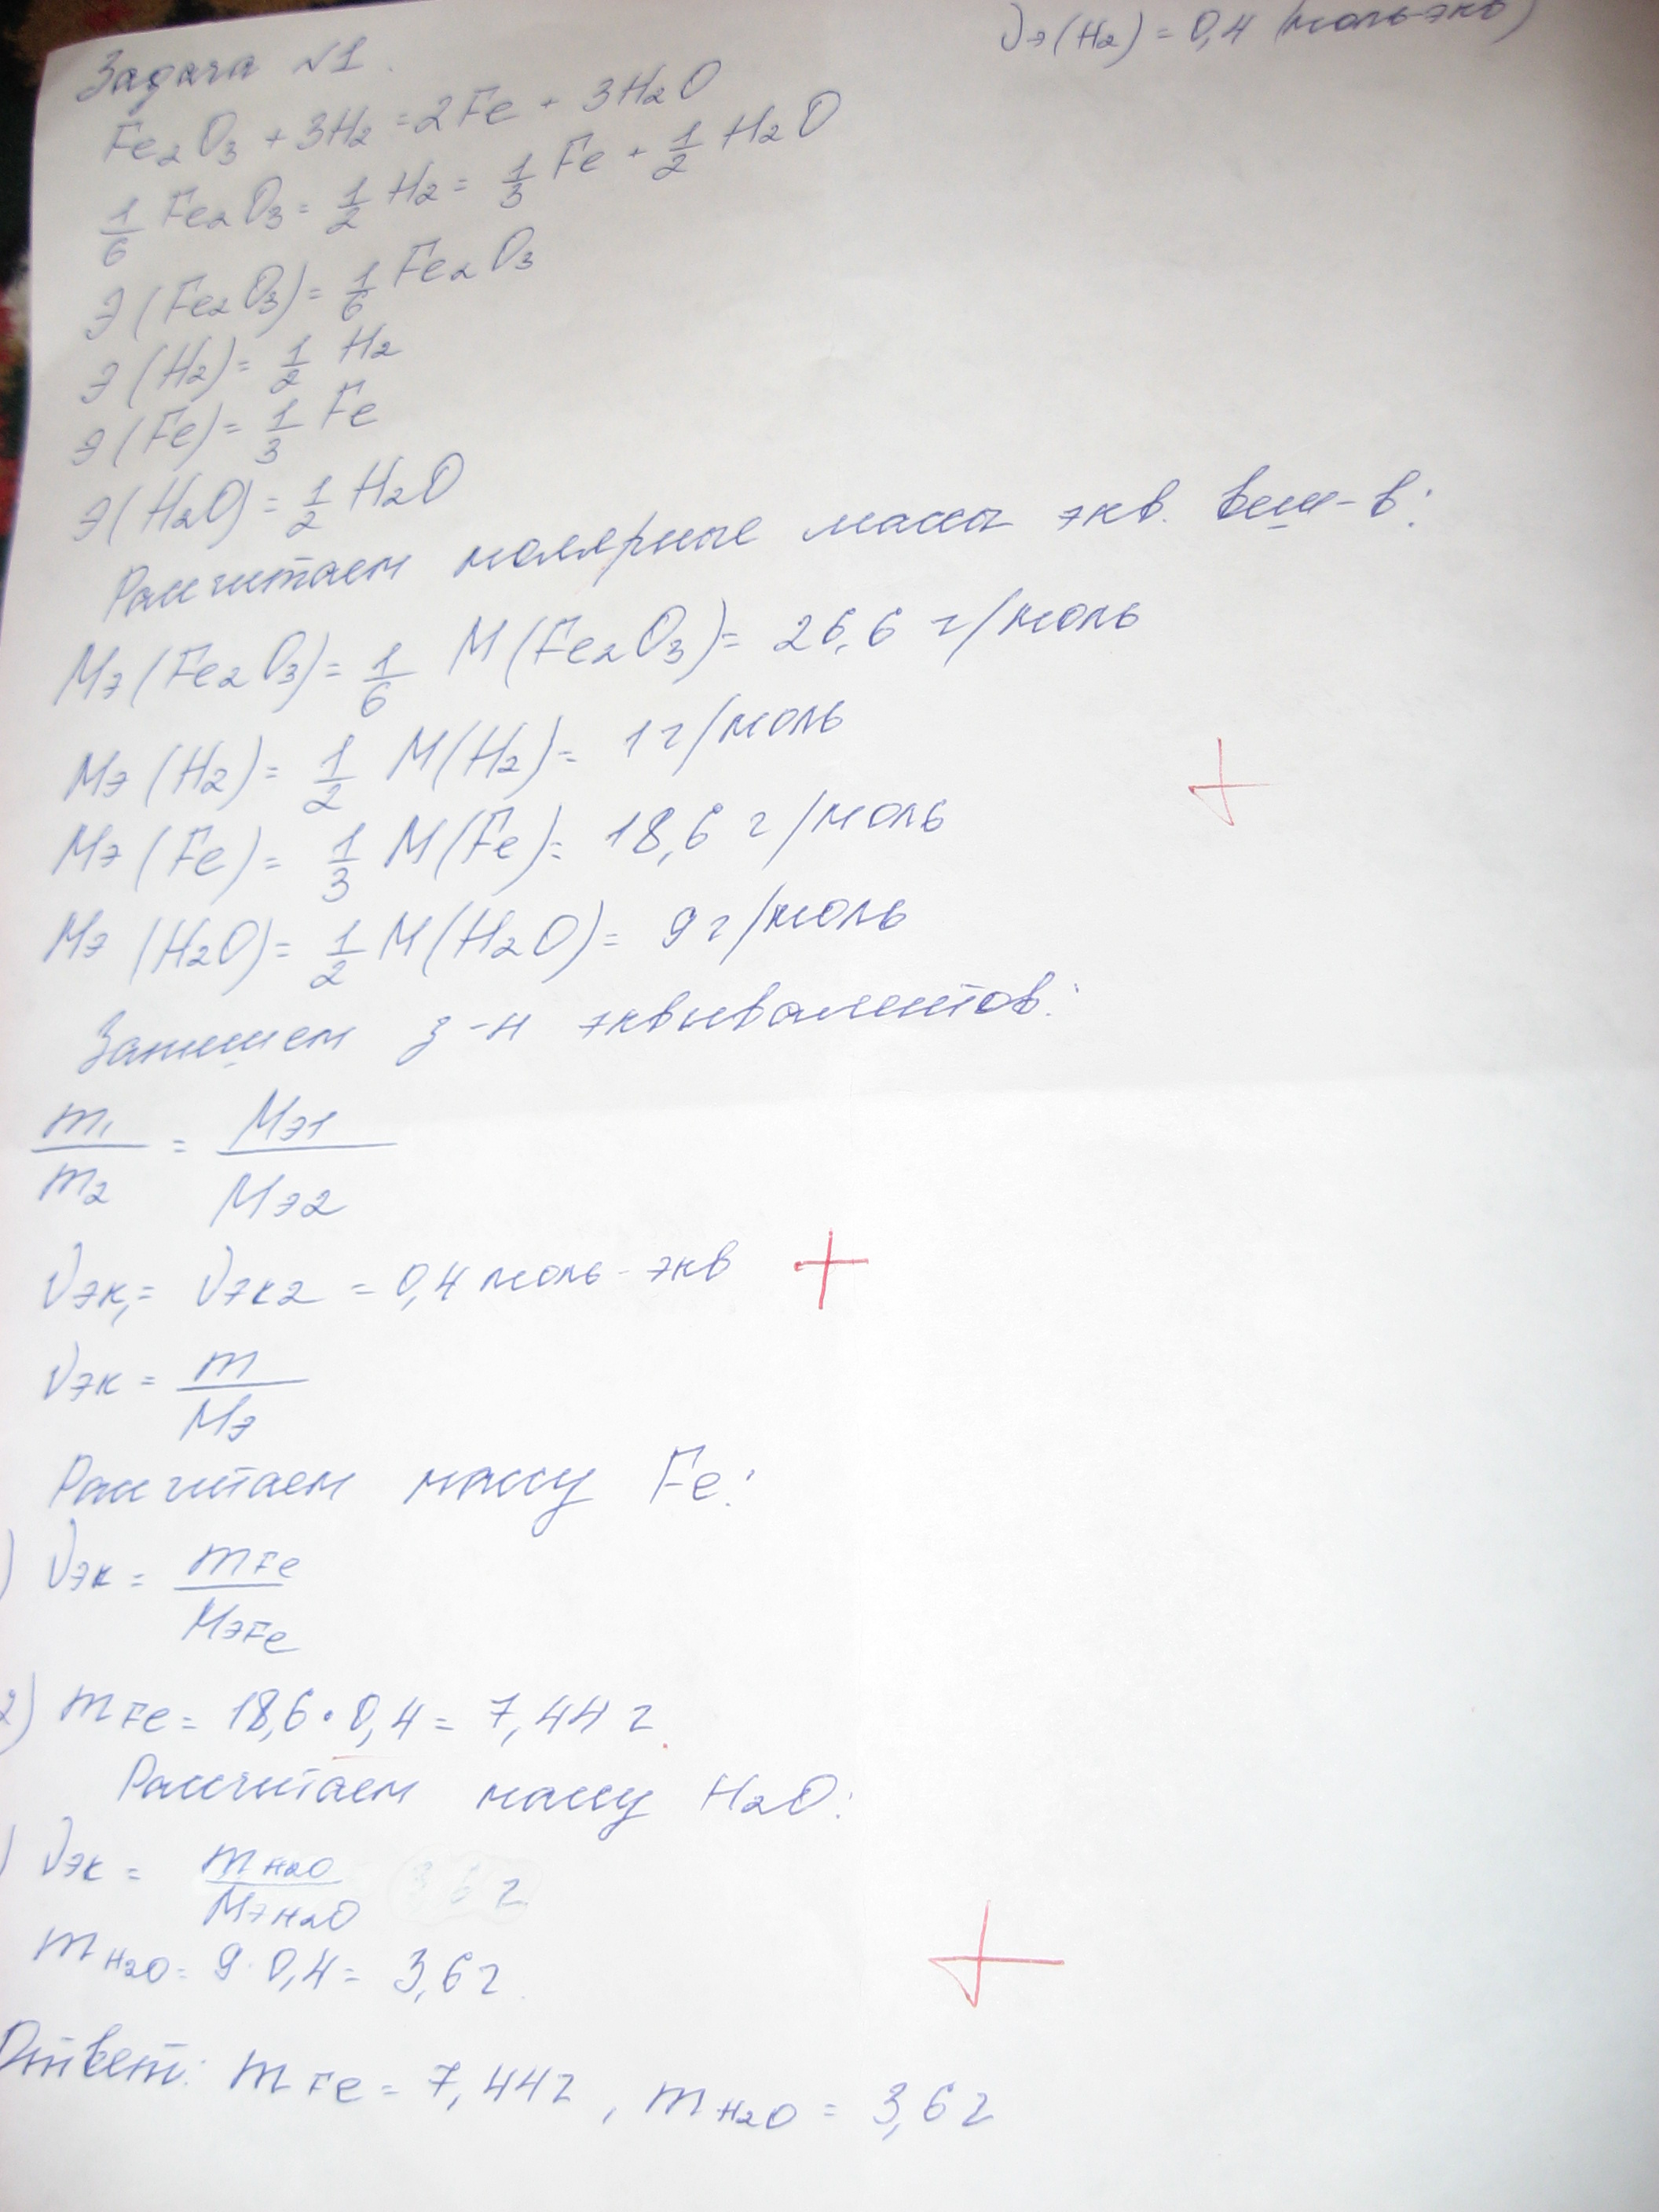 νэ(H₂) = 0,4 (моль-экв)
Задача №1.
Fe₂O₃ + 3H₂ = 2Fe + 3H₂O
1/6 Fe₂O₃ = 1/2 H₂ = 1/3 Fe + 1/2 H₂O
Э(Fe₂O₃) = 1/6 Fe₂O₃
Э(H₂) = 1/2 H₂
Э(Fe) = 1/3 Fe
Э(H₂O) = 1/2 H₂O
Рассчитаем молярные массы экв. вещ-в:
Mэ(Fe₂O₃) = 1/6 M(Fe₂O₃) = 26,6 г/моль
Mэ(H₂) = 1/2 M(H₂) = 1 г/моль
Mэ(Fe) = 1/3 M(Fe) = 18,6 г/моль
Mэ(H₂O) = 1/2 M(H₂O) = 9 г/моль
Запишем з-н эквивалентов:
m₁/m₂ = Mэ1/Mэ2
νэк₁ = νэк2 = 0,4 моль-экв
νэк = m/Mэ
Рассчитаем массу Fe:
) νэк = mFe/MэFe
2) mFe = 18,6 · 0,4 = 7,44 г
Рассчитаем массу H₂O:
) νэк = mH₂O/MэH₂O 3 6 г
mH₂O = 9 · 0,4 = 3,6 г.
Ответ: mFe = 7,44 г, mH₂O = 3,6 г